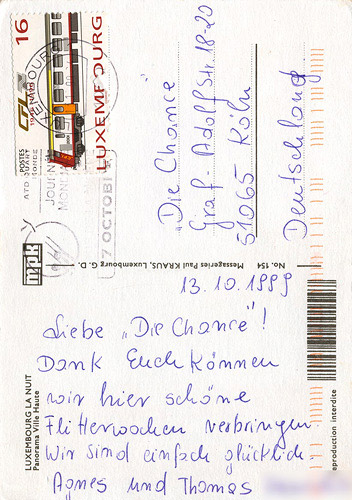 16
LUXEMBOURG
CFL
POSTES
LUXEMBOURG
7 OCTOBRE
"Die Chance"
Graf-Adolf Str. 18-20
51065 Köln
Deutschland
mpk
No. 154 Messageries Paul KRAUS, Luxembourg G. D.
LUXEMBOURG LA NUIT
Panorama Ville Haute
13.10.1999
Liebe „Die Chance"!
Dank Euch können
wir hier schöne
Flitterwochen verbringen
Wir sind einfach glücklich.
Agnes und Thomas
eproduction interdite